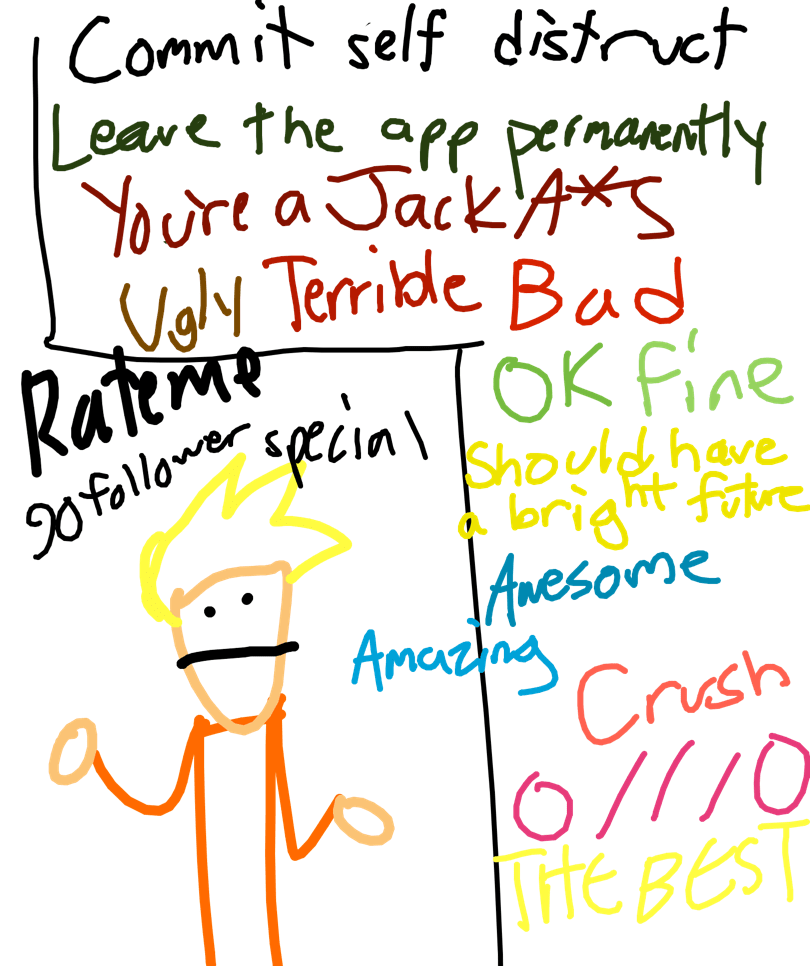 Commit self distruct
Leave the app permanently
You're a Jack A*S
Ugly Terrible Bad
Rate me
90 follower special
OK Fine
Should have
a bright future
Awesome
Amazing
Crush
O///O
THE BEST